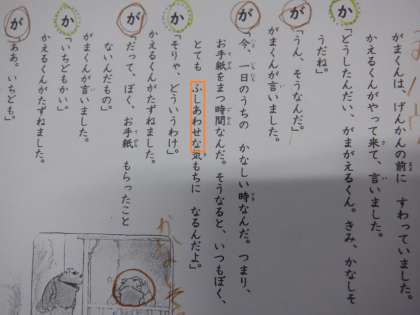 がまくんは、げんかんの前に すわっていました。
かえるくんがやって来て、言いました。
か
「どうしたんだい、がまがえるくん。きみ、かなしそ
うだね。」
が
「うん、そうなんだ。」
がまくんが言いました。
が
「今、一日のうちの かなしい時なんだ。つまり、
お手紙をまつ時間なんだ。そうなると、いつもぼく、
とても ふしあわせな気もちに なるんだよ。」
か
「そりゃ、どういうわけ。」
かえるくんがたずねました。
が
「だって、ぼく、お手紙 もらったこと
ないんだもの。」
がまくんが言いました。
か
「いちどもかい。」
かえるくんがたずねました。
が
「ああ。いちども。」